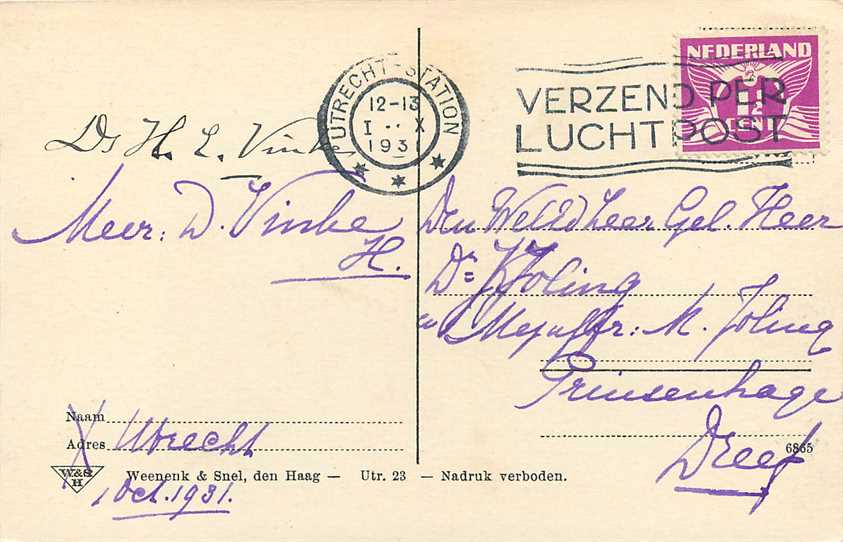 NEDERLAND
1½
CENT
UTRECHT-STATION
12-13
I .. X
1931
VERZEND PER
LUCHTPOST
Ds H. L. Vink
Mevr: D. Vinke
H.
Den WelEd Zeer Gel. Heer
Dr J Joling
en Mejuffr: M. Joling
Prinsenhage
Dreef
Naam
Adres Utrecht
1 Oct. 1931.
W&S
H
Weenenk & Snel, den Haag — Utr. 23 — Nadruk verboden.
6865